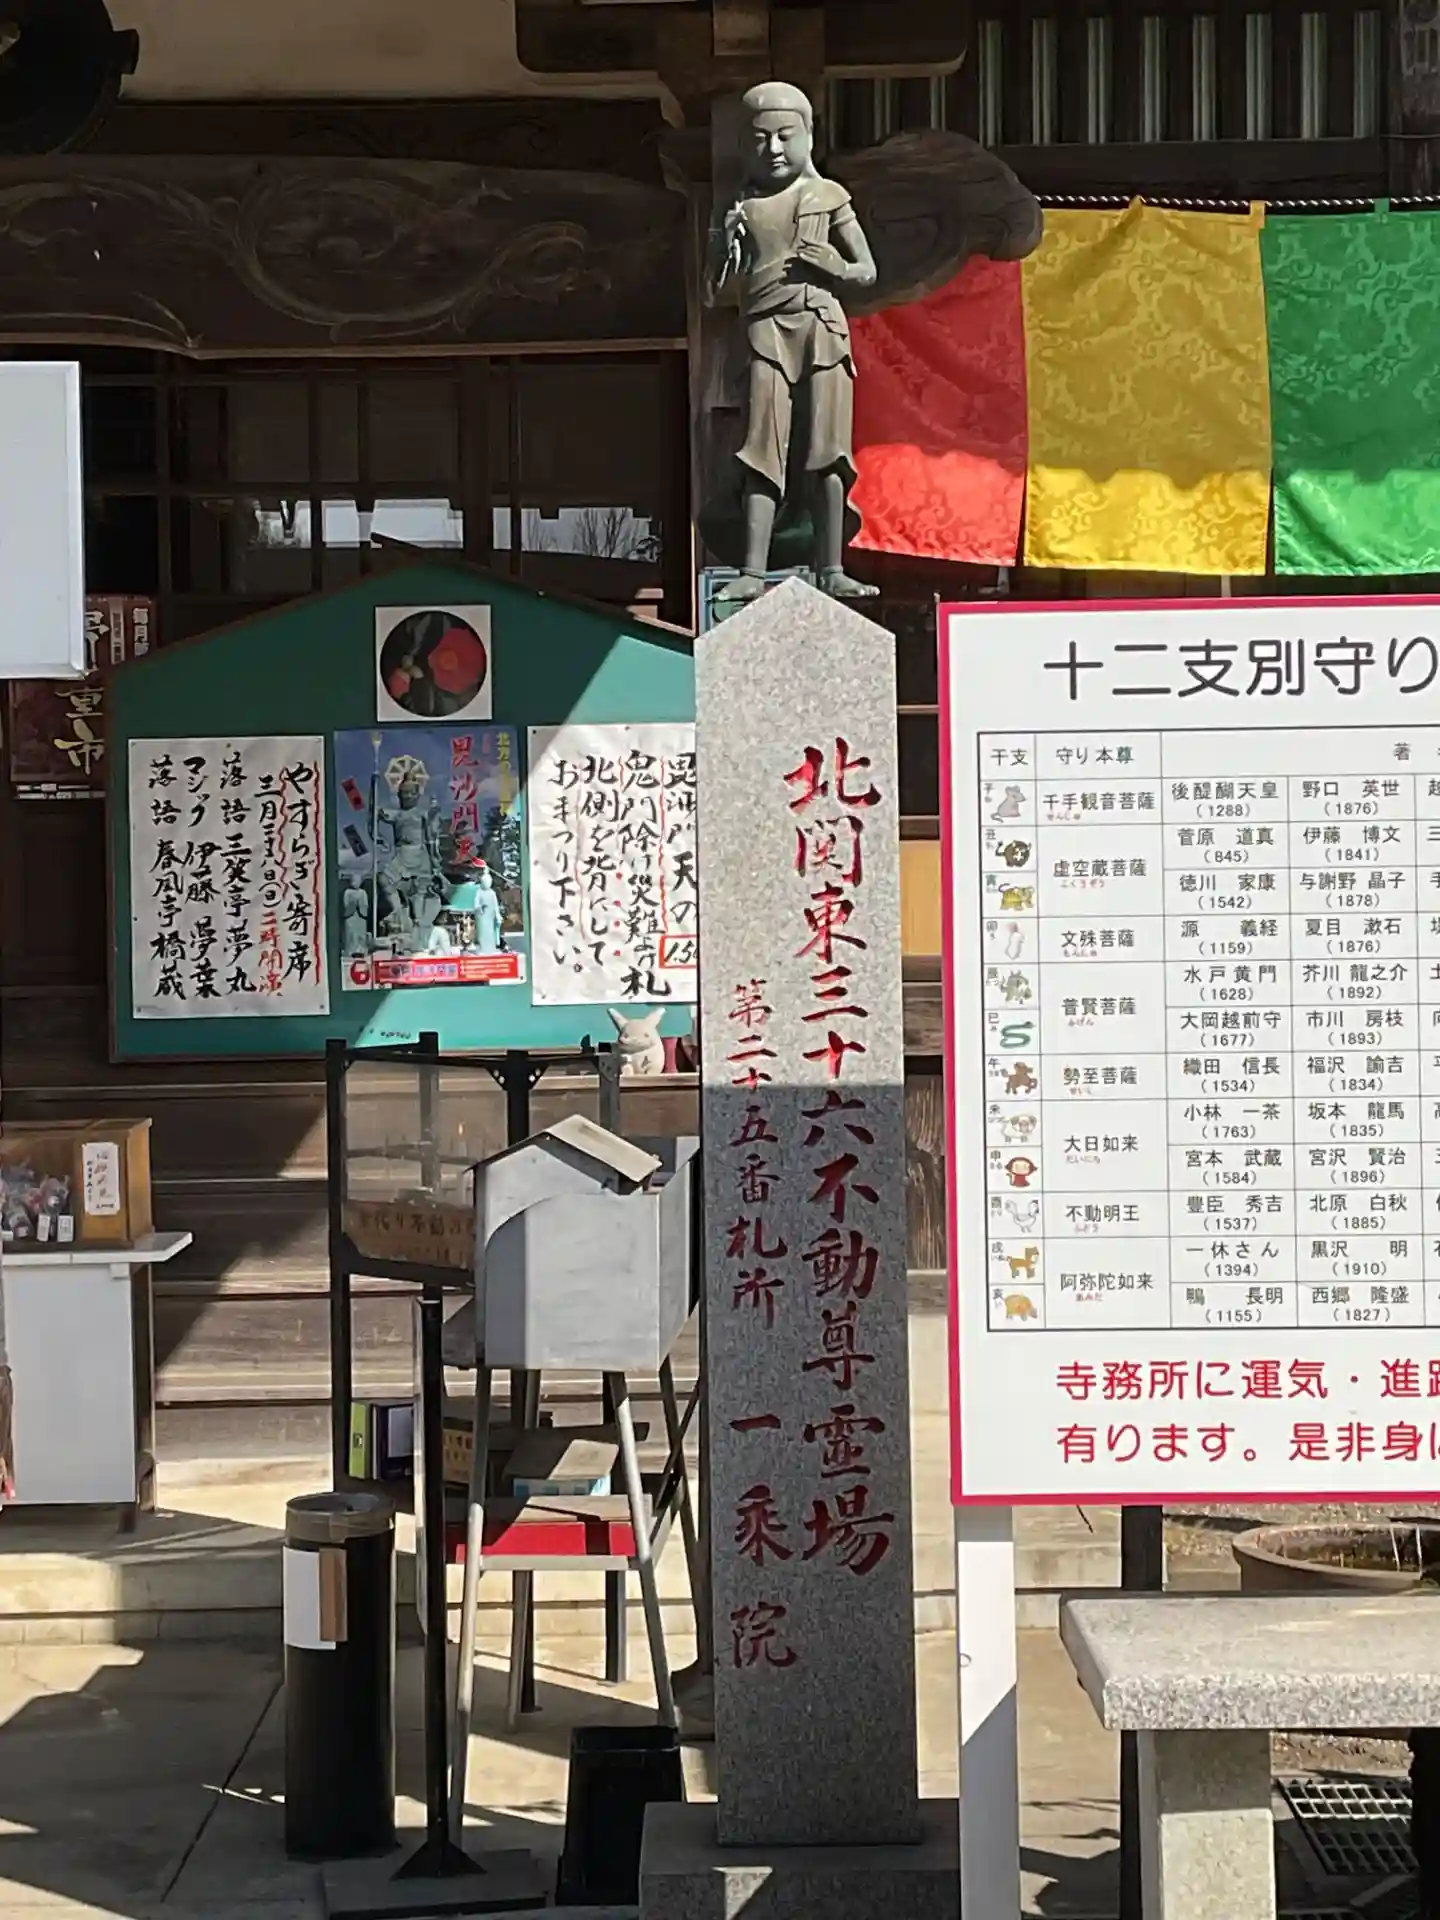 毎月
市
やすらぎ寄席
三月二十八日(日)二時開演
落語 三笑亭夢丸
マジック 伊藤夢葉
落語 春風亭橋蔵
毘沙門天
毘沙門天の
鬼門除け災難よけ札
北側を背にして
おまつり下さい。
北関東三十六不動尊霊場
第二十五番札所 一乗院
十二支別守り
干支 守り本尊 著
子 千手観音菩薩 後醍醐天皇(1288) 野口 英世(1876)
丑 虚空蔵菩薩 菅原 道真(845) 伊藤 博文(1841)
寅 徳川 家康(1542) 与謝野 晶子(1878)
卯 文殊菩薩 源 義経(1159) 夏目 漱石(1876)
辰 普賢菩薩 水戸黄門(1628) 芥川 龍之介(1892)
巳 大岡越前守(1677) 市川 房枝(1893)
午 勢至菩薩 織田 信長(1534) 福沢 諭吉(1834)
未 大日如来 小林 一茶(1763) 坂本 龍馬(1835)
申 宮本 武蔵(1584) 宮沢 賢治(1896)
酉 不動明王 豊臣 秀吉(1537) 北原 白秋(1885)
戌 阿弥陀如来 一休さん(1394) 黒沢 明(1910)
亥 鴨 長明(1155) 西郷 隆盛(1827)
寺務所に運気・進
有ります。是非身